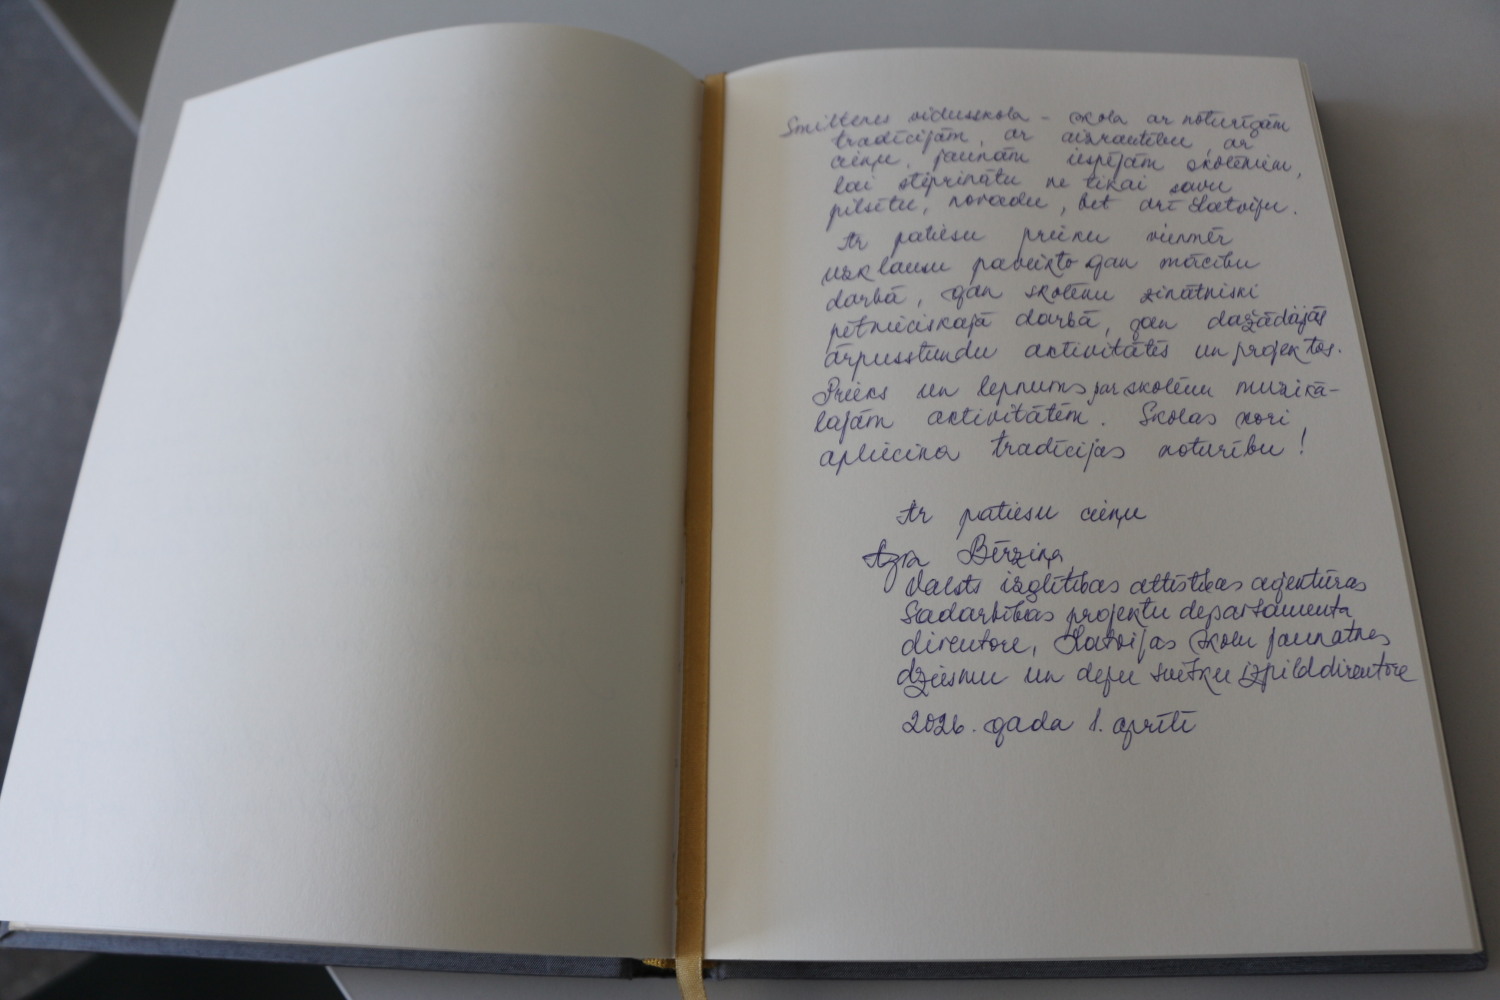 Smiltenes vidusskola - skola ar noturīgām
tradīcijām, ar aizrautību, ar
cieņu, jaunām iespējām skolēniem,
lai stiprinātu ne tikai savu
pilsētu, novadu, bet arī Latviju.
Ar patiesu prieku vienmēr
uzklausu paveikto gan mācību
darbā, gan skolēnu zinātniski
pētnieciskajā darbā, gan dažādajās
ārpusstundu aktivitātēs un projektos.
Prieks un lepnums par skolēnu muzikā-
lajām aktivitātēm. Skolas kori
apliecina tradīcijas noturību!
Ar patiesu cieņu
Bērziņa
Valsts izglītības attīstības aģentūras
Sadarbības projektu departamenta
direktore, Latvijas skolu jaunatnes
dziesmu un deju svētku izpilddirektore
2026. gada 1. aprīlī